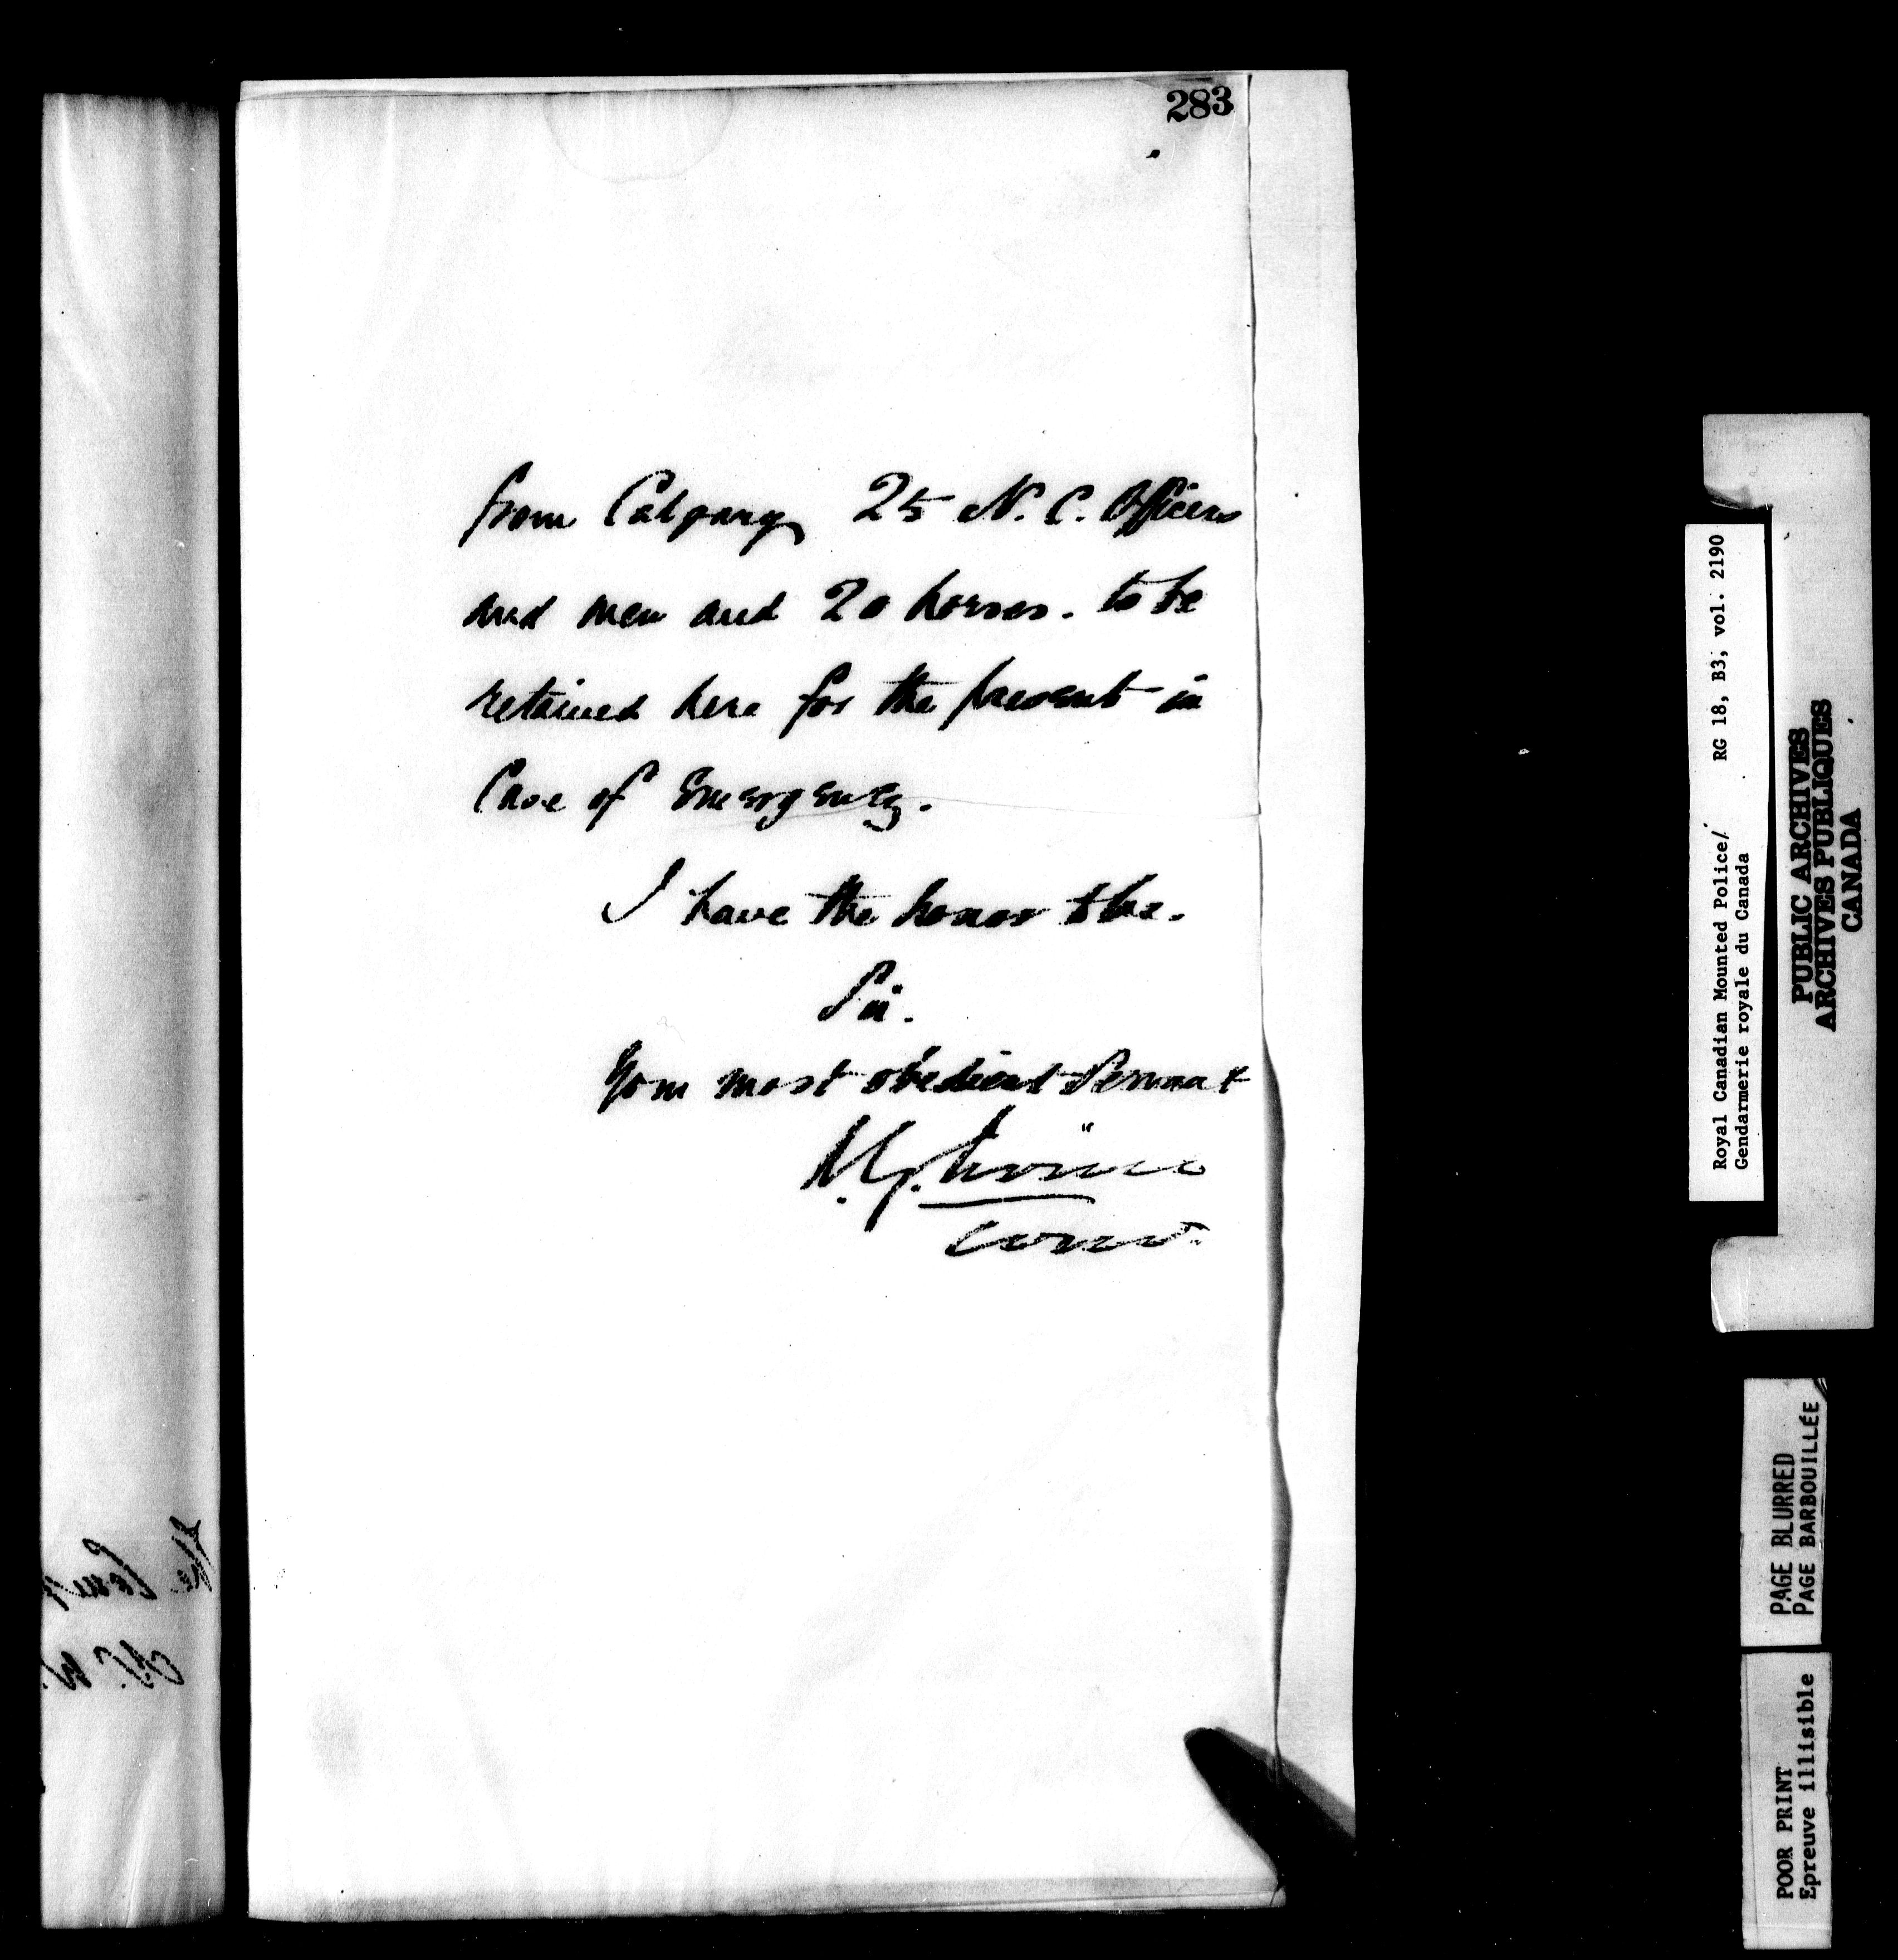 283
from Calgary 25 N. C. Officers
and men and 20 horses. to be
retained here for the present in
Case of Emergency.
I have the honor to be.
Sir.
Your most obedient Servant
A. G. Irvine
Comr.
The
N. W.
Royal Canadian Mounted Police/ RG 18, B3, vol. 2190
Gendarmerie royale du Canada
PUBLIC ARCHIVES
ARCHIVES PUBLIQUES
CANADA
PAGE BLURRED
PAGE BARBOUILLÉE
POOR PRINT
Epreuve illisible